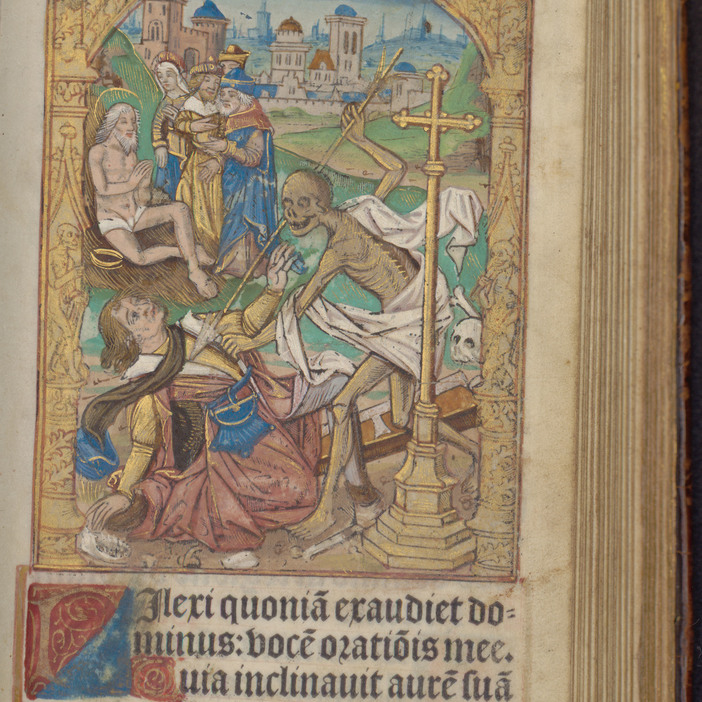 DIlexi quoniā exaudiet do⸗
minus: vocē oratiōis mee.
Quia inclinauit aurē ſuā